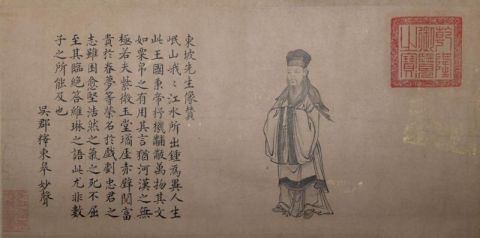 乾隆御覽之寶
東坡先生像贊
岷山峩〻江水所出鍾為異人生
此王國秉帝杼機黼黻萬物其文
如粟帛之有用其言猶河漢之無
極若夫紫微玉堂瓊崖赤壁閱富
貴於春夢等榮名於戲劇忠君之
志雖困愈堅浩然之氣之死不屈
至其臨絕答維琳之語此尤非數
子之所能及也
吳郡釋東皋妙聲